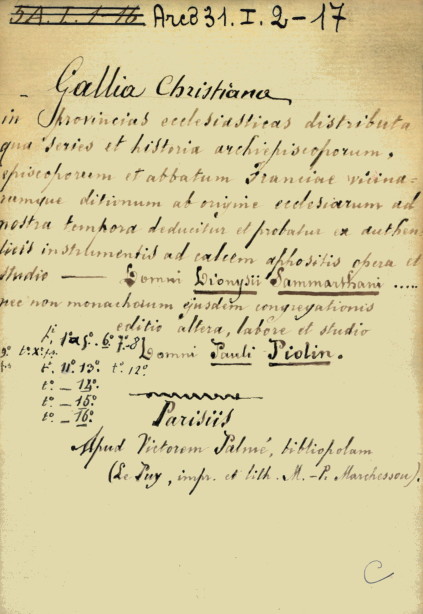 5A.1.1-16 Arc831.I.2-17
Gallia Christiana
in Provincias ecclesiasticas distributa
qua series et historia archiepiscoporum,
episcoporum et abbatum Franciae vicina-
rumque ditionum ab origine ecclesiarum ad
nostra tempora deducitur et probatur ex authen-
ticis instrumentis ad calcem appositis opera et
studio — Domni Dionysii Sammarthani .....
nec non monachorum ejusdem congregationis
editio altera, labore et studio
Domni Pauli Piolin.
t: 1º à 5º. 6º 7º-8
t: 11º. 13º. tº. 12º
tº — 14º.
tº — 15º
tº — 16º.
Parisiis
Apud Victorem Palmé, bibliopolam
(Le Puy, impr. et lith. M.-P. Marchessou).
C